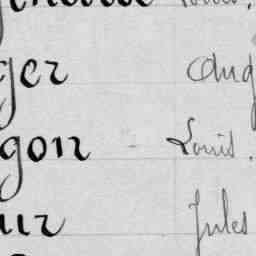 ger Aug
gon - Louis.
ur Jules